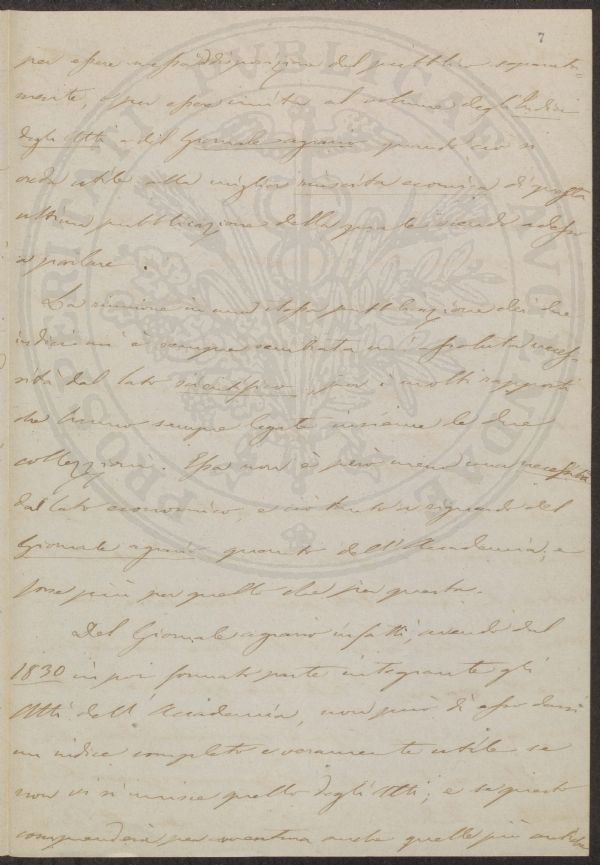 7
per essere messo a disposizione del pubblico separata-
mente, o per essere unita al volume degli Indici
degli Atti e del Giornale agrario quando ciò si
creda utile alla miglior riuscita economica di questa
ultima pubblicazione della quale scendo adesso
a parlare.
La riunione in una stessa pubblicazione dei due
indici mi è sempre sembrata un'assoluta neces-
sità dal lato scientifico, per i molti rapporti
che hanno sempre legate insieme le due
collezioni. Essa non è però meno una necessità
dal lato economico, e ciò tanto a riguardo del
Giornale agrario quanto dell'Accademia, e
forse più per quello che per questa.
Del Giornale agrario infatti, avendo dal
1830 in poi formato parte integrante gli
Atti dell'Accademia, non può di esso darsi
un indice completo e veramente utile se
non vi si unisce quello degli Atti; e se questo
comprenderà per avventura anche quelle più antiche
PROSPERITATI PUBLICAE AUGENDAE